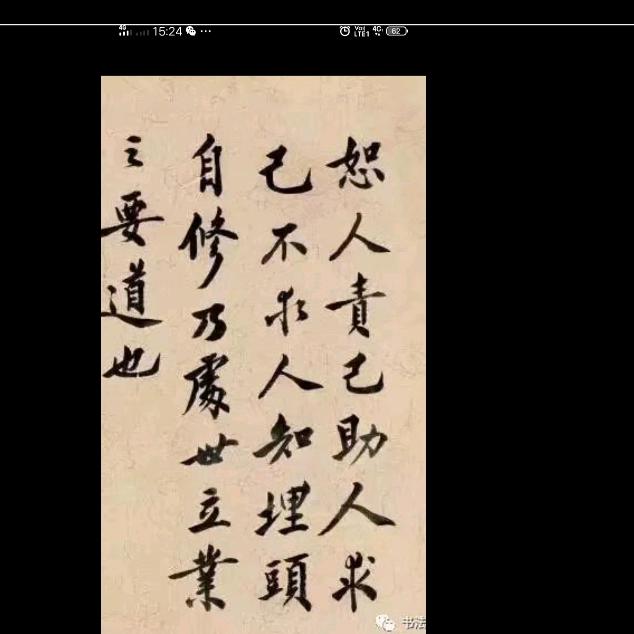 15:24
62
恕人責己助人求
己不求人知埋頭
自修乃處世立業
之要道也
书法